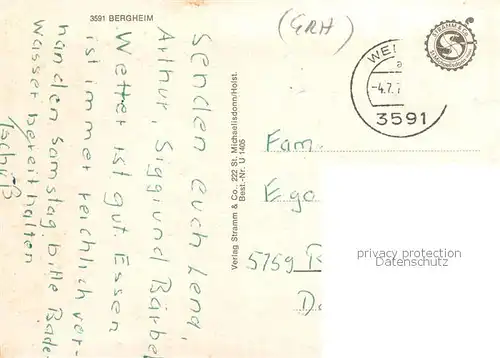 3591 BERGHEIM
Senden euch Lena,
Arthur, Siggi und Bärbel
Wetter ist gut. Essen
ist immer reichlich vor-
handen Samstag bitte Bade-
wasser bereithalten
Tschüß
Verlag Stramm & Co., 222 St. Michaelisdonn/Holst.
Best.-Nr. U 1405
(GRH)
STRAMM & CO.
St. Michaelisdonn
WE
a
-4.7.7
3591
Fam.
Ego
5759
privacy protection
Datenschutz